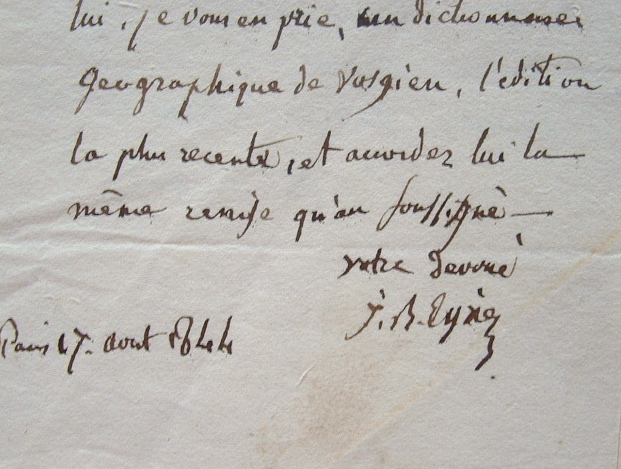 lui, je vous en prie, un dictionnaire
géographique de Vosgien, l'édition
la plus recente, et accordez lui la
même remise qu'au soussigné
votre devoué
J. B. Eyriès
Paris 17. aout 1844